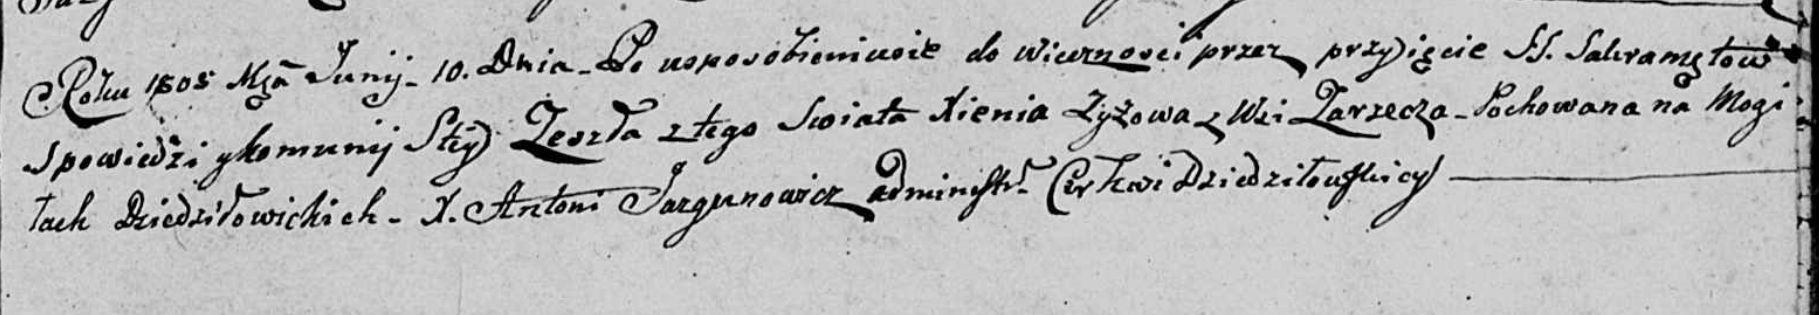 Roku 1808 Mca Junij 10. Dnia - Po usposobieniu sie do wiecznosci przez przyięcie SS. Sakramętow
Spowiedzi y komunij Stey Zeszła z tego Swiata Xienia Zyżowa z Wsi Zarzecza - Pochowana na Mogi
łach Dziedziłowickich - X. Antoni Jazgunowicz administr. Cerkwi Dziedziłowskicy